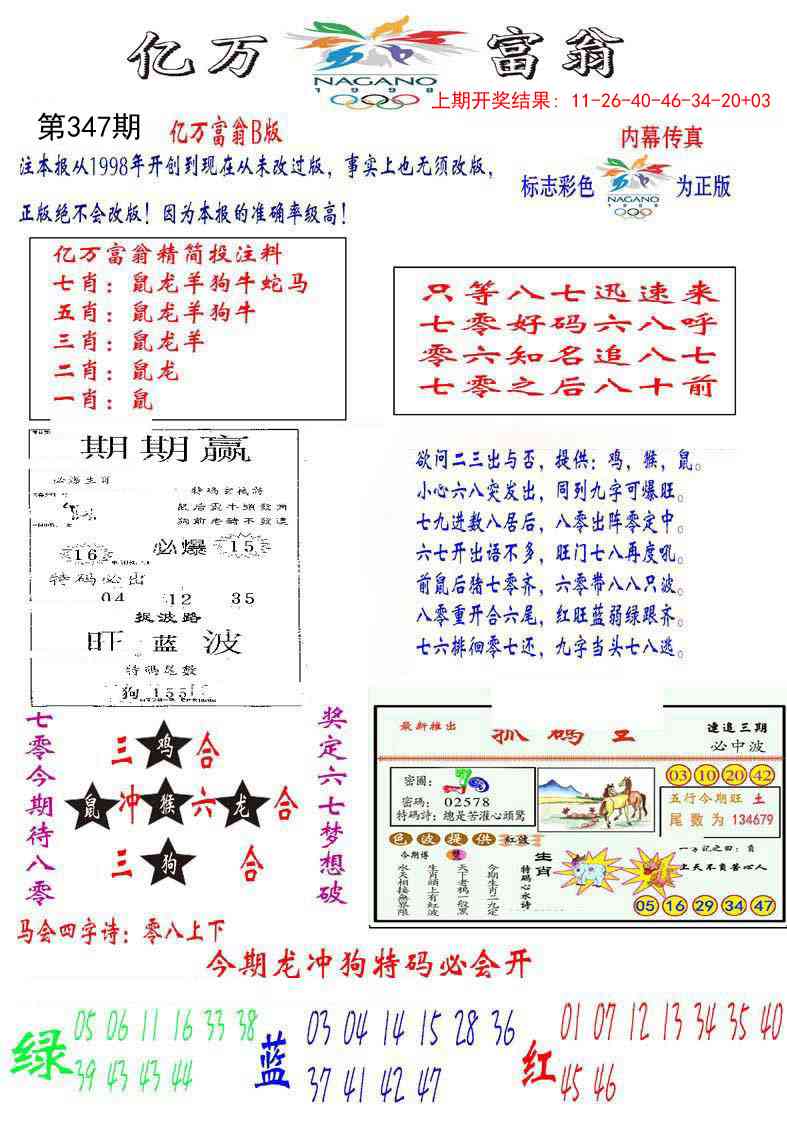 亿万富翁
NAGANO
1998
上期开奖结果：11-26-40-46-34-20+03
第347期
亿万富翁B版
内幕传真
注本报从1998年开创到现在从未改过版，事实上也无须改版，
标志彩色
NAGANO
1998
为正版
正版绝不会改版！因为本报的准确率级高！
亿万富翁精简投注料
七肖：鼠龙羊狗牛蛇马
五肖：鼠龙羊狗牛
三肖：鼠龙羊
二肖：鼠龙
一肖：鼠
只等八七迅速来
七零好码六八呼
零六知名追八七
七零之后八十前
期期赢
必爆生肖
特码玄机诗
必爆
16
15
特码必出
04 12 35
捉波路
旺蓝波
特码尾数
狗155
欲问二三出与否，提供：鸡，猴，鼠。
小心六八突发出，同到九字可爆旺。
七九进数八居后，八零出阵零定中。
六七开出语不多，旺门七八再度吼。
前鼠后猪七零齐，六零带八八只波。
八零重开合六尾，红旺蓝弱绿跟齐。
七六排徊零七还，九字当头七八逃。
七零今期待八零
三鸡合
鼠冲猴六龙合
三狗合
奖定六七梦想破
最新推出
抓码王
速追三期
必中波
密圈：
密码：02578
特码詩：總是苦灌心頭鷔
03 10 20 42
五行今期旺 土
尾数为 134679
色波提供 红波
今期博 雙
水天相接無界限
生肖頭上有红波
天下老鸦一般黑
今期生肖二九定
特码心水诗
生肖
一字记之曰：負
上天不負苦心人
05 16 29 34 47
马会四字诗：零八上下
今期龙冲狗特码必会开
绿
05 06 11 16 33 38
39 43 43 44
蓝
03 04 14 15 28 36
37 41 42 47
红
01 07 12 13 34 35 40
45 46